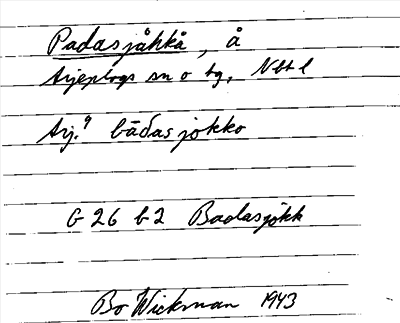 Padasjåhkå, å
Arjeplogs sn o tg, Nbt l
Arj.9 bādas jokko
G 26 b2 Badasjåkk
Bo Wickman 1943